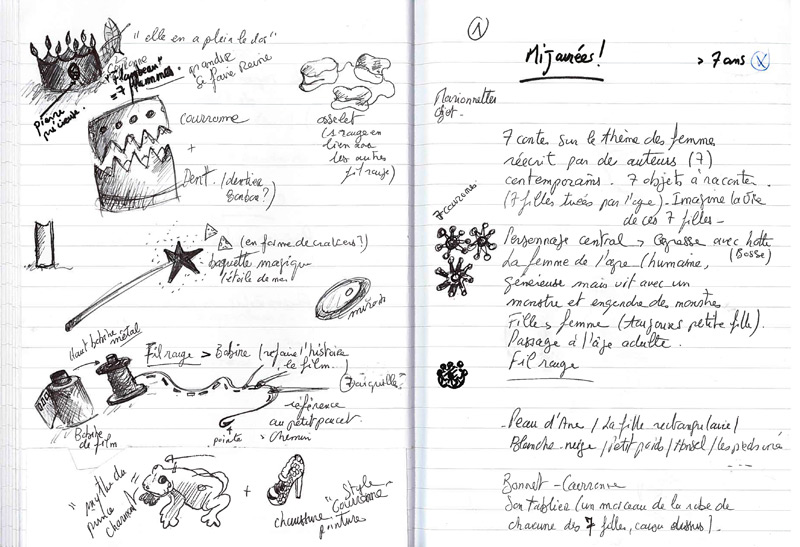 "elle en a plein le dos"
Couronne
"flambeau"
= 7 flammes.
grandir
se faire Reine
pierre
précieuse.
Couronne
+
Dent. (dentier
Bonbon?)
osselet
(1 rouge en
lien avec
les autres
fil rouge)
(en forme de crackers?)
baguette magique
l'étoile de mer
miroir
Haut bobine métal
Fil rouge > Bobine (refaire l'histoire
le film.
7 aiguilles
référence
au petit poucet
> chemin
pointe
Bobine
de film
"mythe du
prince
charmant"
+
chaussure
"Style
Couronne
peintures
1
Mijaurées!
> 7 ans X
Marionnettes
objet.
7 contes sur le thème des femmes
réécrit par des auteurs (7)
contemporains. 7 objets à raconter.
(7 filles tuées par l'ogre). Imagine la vie
de ces 7 filles -
7 couronnes
Personnage central > Ogresse avec hotte
(Bosse)
La femme de l'ogre (humaine,
généreuse mais vit avec un
monstre et engendre des monstres
Filles femme (toujours petite fille).
Passage à l'âge adulte.
Fil rouge
- Peau d'Ane / La fille rectangulaire /
Blanche-neige / Petit poids / Hansel / Les pieds
Bonnet - Couronne
Son tablier (un morceau de la robe de
chacune des 7 filles, cousu dessus).